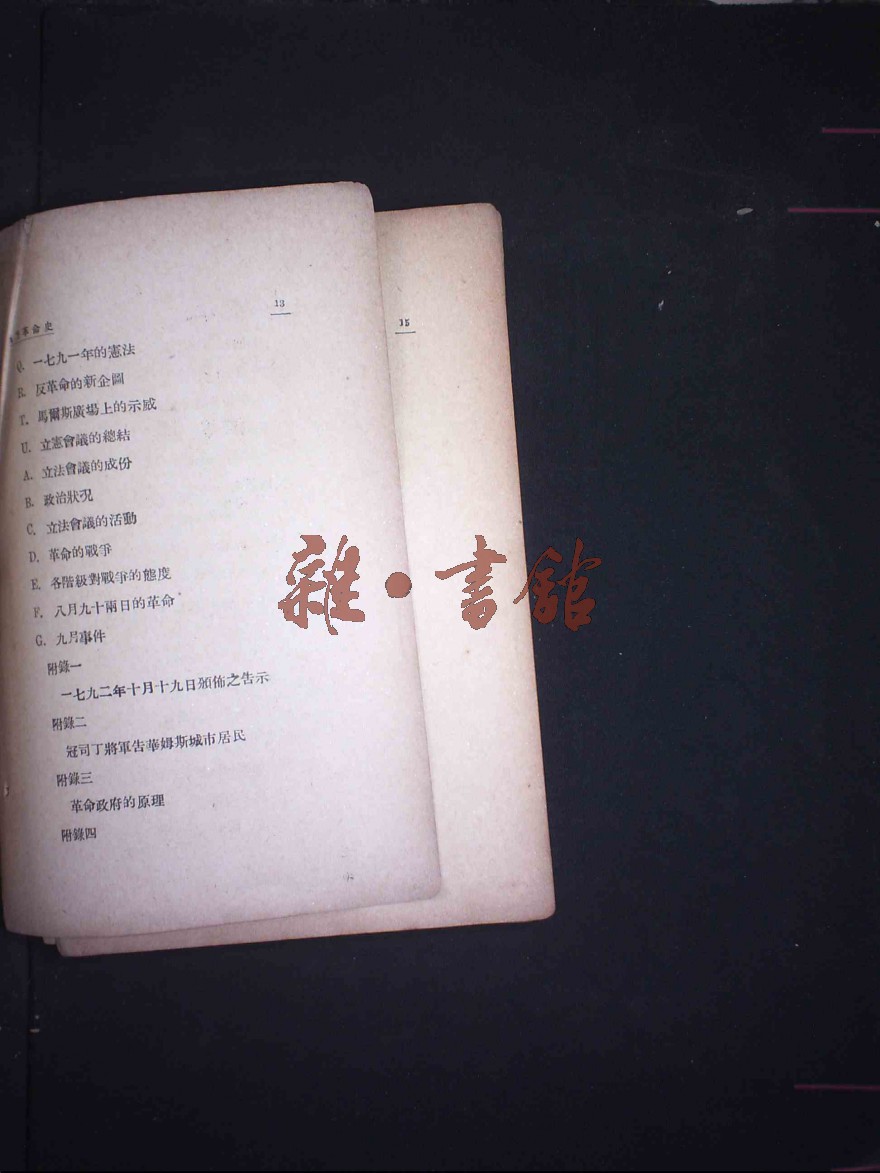 13
革命史
Q. 一七九一年的憲法
R. 反革命的新企圖
T. 馬爾斯廣場上的示威
U. 立憲會議的總結
A. 立法會議的成份
B. 政治狀况
C. 立法會議的活動
D. 革命的戰爭
E. 各階級對戰爭的態度
F. 八月九十兩日的革命
G. 九月事件
附錄一
一七九二年十月十九日頒佈之告示
附錄二
冠司丁將軍告華姆斯城市居民
附錄三
革命政府的原理
附錄四
15
雜·書館